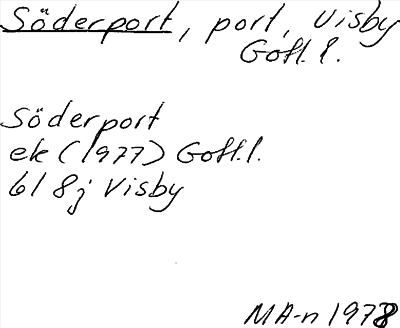 Söderport, port, Visby
Gotl. l.
Söderport
ek (1977) Gotl. l.
6I 8j Visby
MA-n 1978